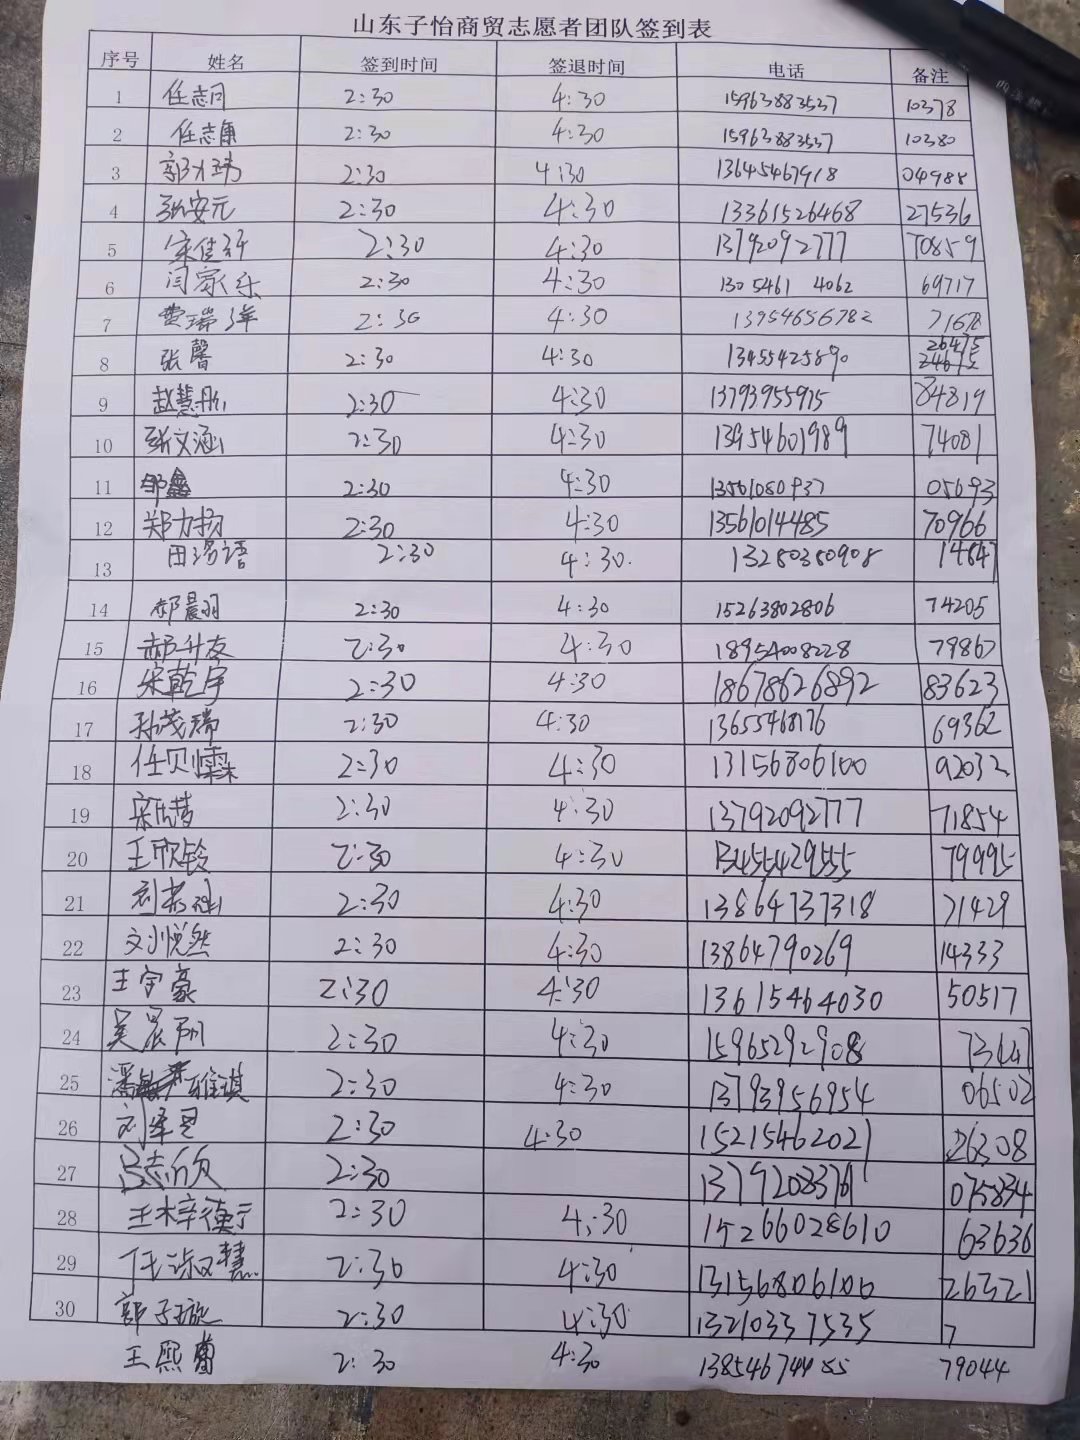 山东子怡商贸志愿者团队签到表
序号 姓名 签到时间 签退时间 电话 备注
1 任志同 2:30 4:30 15963883537 10378
2 任志角 2:30 4:30 15963883537 10380
3 郭才玮 2:30 4:30 13645467918 04988
4 张安元 2:30 4:30 13361526468 27536
5 宋佳研 2:30 4:30 13792092777 70859
6 闫家乐 2:30 4:30 1305461 4062 69717
7 费瑞洋 2:30 4:30 13954656782 71678
8 张馨 2:30 4:30 13455425890 26475
9 赵慧彤 2:30 4:30 13793955915 84819
10 张文涵 2:30 4:30 13954601989 74081
11 邹鑫 2:30 4:30 13561080937 05693
12 郑力扬 2:30 4:30 13561014485 70966
13 田语 2:30 4:30. 13280380908 14647
14 郝晨羽 2:30 4:30 15263802806 74205
15 郝升友 2:30 4:30 18954008228 79867
16 宋乾宇 2:30 4:30 18678626892 83623
17 孙茂瑞 2:30 4:30 13655468176 69362
18 任贝霖 2:30 4:30 13156806100 92032
19 宋 2:30 4:30 13792092777 71854
20 王欣铃 2:30 4:30 13455429555 79995
21 刘 2:30 4:30 13864737318 71429
22 刘悦然 2:30 4:30 13864790269 14333
23 王宇豪 2:30 4:30 13615464030 50517
24 吴晨阳 2:30 4:30 15965292908 73447
25 潘雅琪 2:30 4:30 13793956954 06502
26 刘泽昱 2:30 4:30 15215462021 26308
27 吕志欣 2:30 13792083761 075834
28 王梓德宁 2:30 4:30 15266028610 63636
29 任淑慧 2:30 4:30 13156806100 26321
30 郭子璇 2:30 4:30 13210337535 7
王熙 2:30 4:30 13854674485 79044